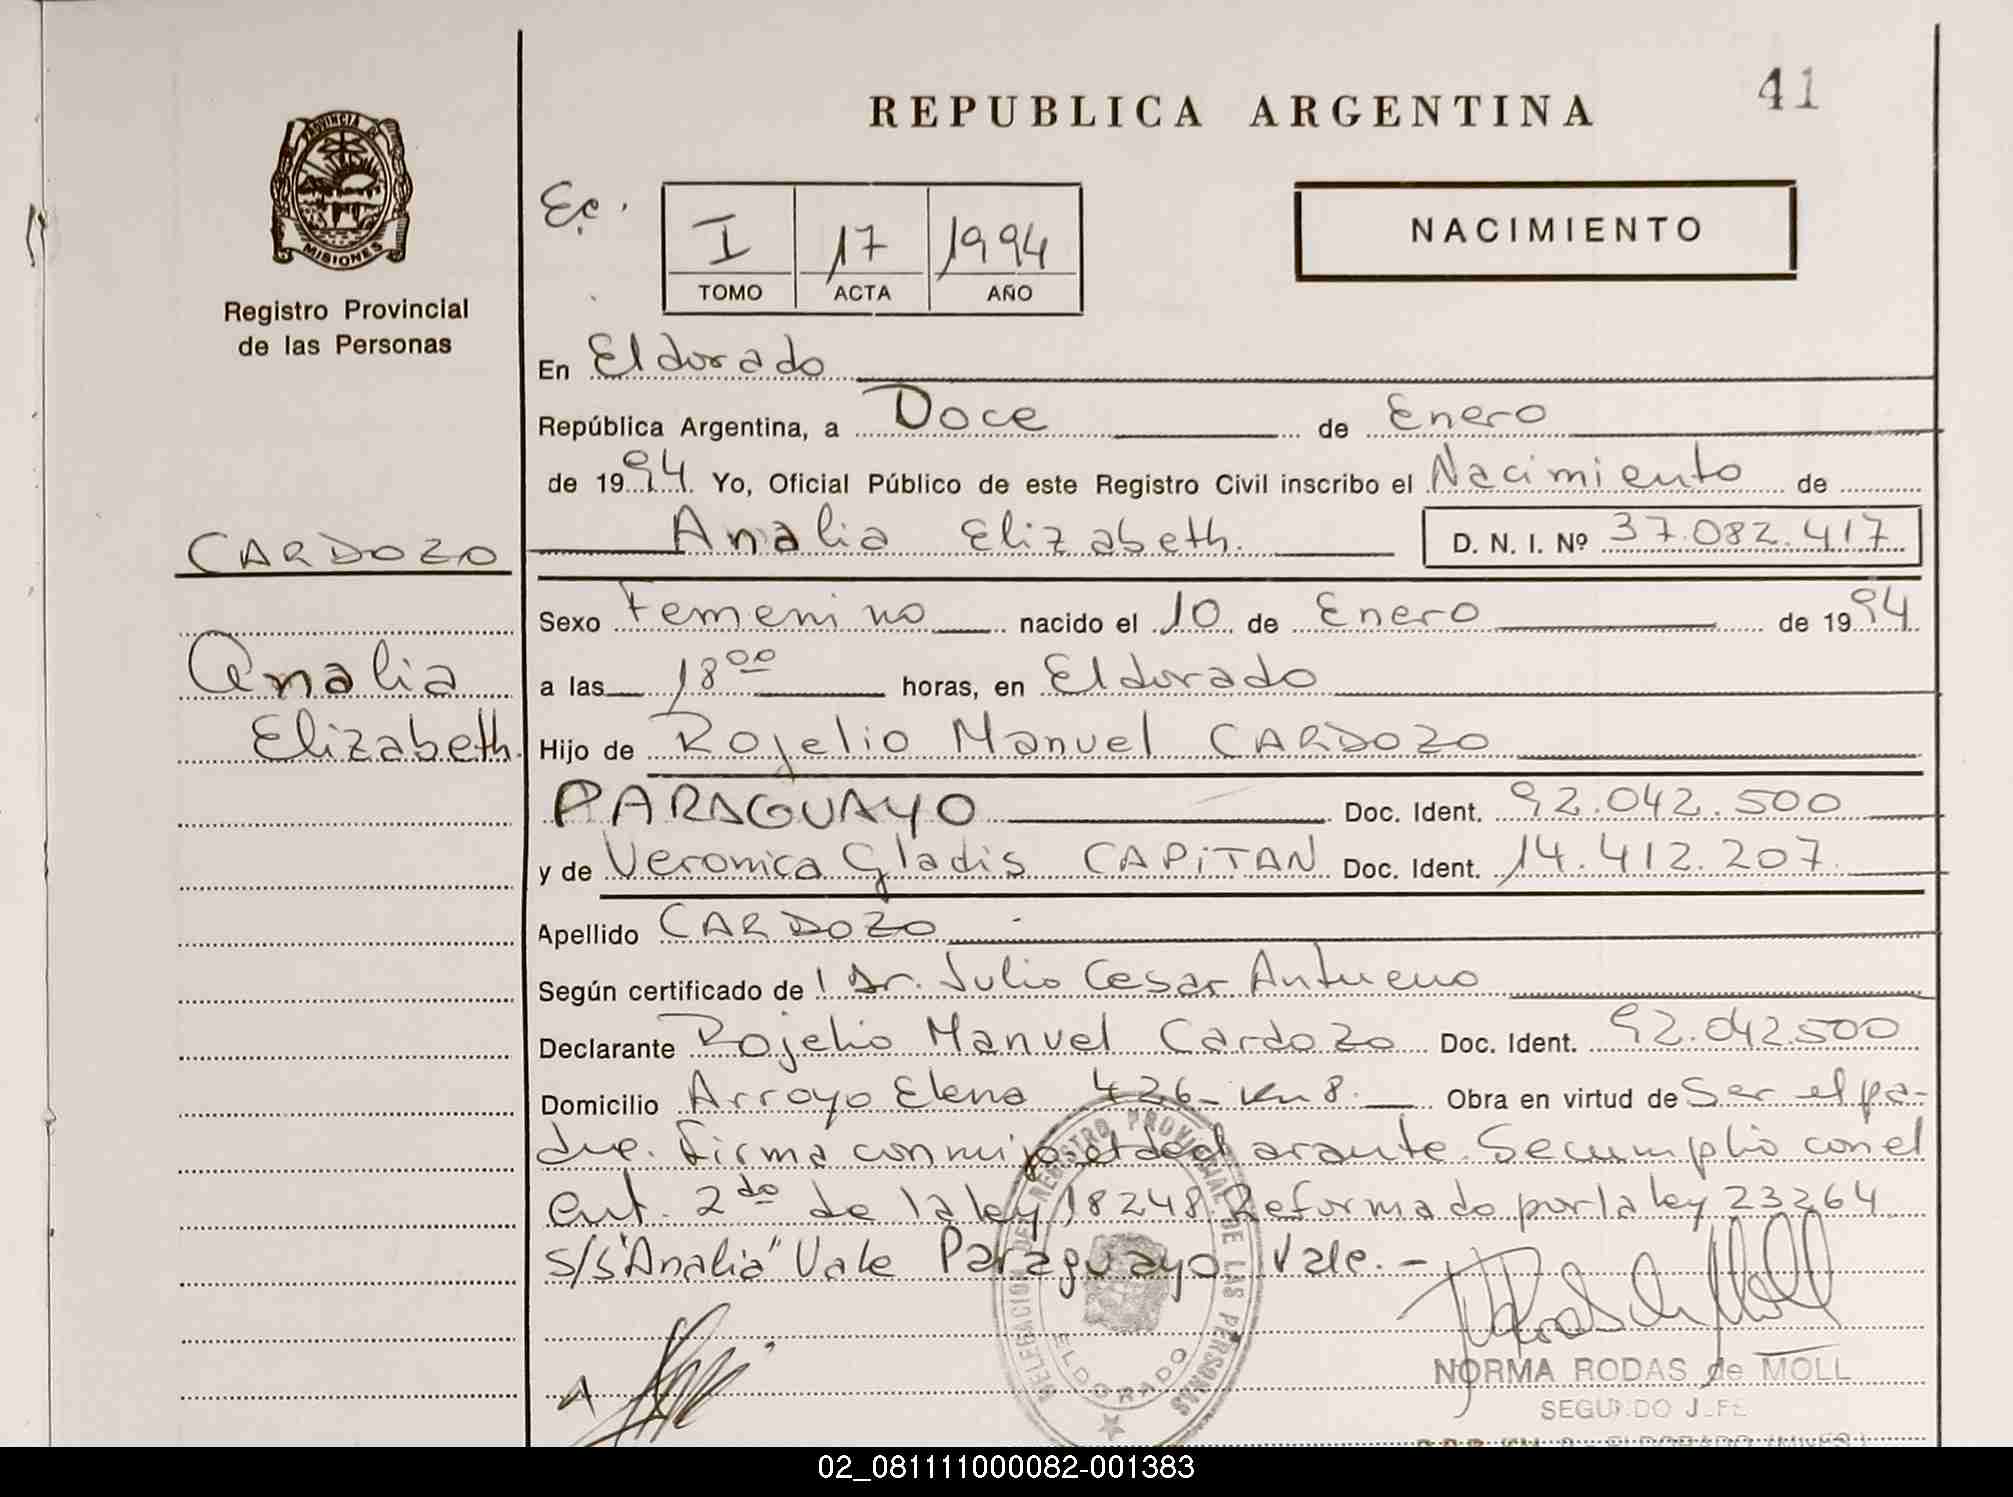 REPUBLICA ARGENTINA
41
PROVINCIA DE
MISIONES
Registro Provincial
de las Personas
I 17 1994
TOMO ACTA AÑO
NACIMIENTO
En Eldorado
República Argentina, a Doce de Enero
de 1994 Yo, Oficial Público de este Registro Civil inscribo el Nacimiento de
CARDOZO
Analia
Elizabeth.
Analia Elizabeth. D. N. I. Nº 37.082.417
Sexo Femenino nacido el 10 de Enero de 1994
a las 18⁰⁰ horas, en Eldorado
Hijo de Rojelio Manuel CARDOZO
PARAGUAYO Doc. Ident. 92.042.500
y de Veronica Gladis CAPITAN Doc. Ident. 14.412.207.
Apellido CARDOZO
Según certificado de l Dr. Julio Cesar
Declarante Rojelio Manuel Cardozo Doc. Ident. 92.042.500
Domicilio Arroyo Elena 426- Km 8. Obra en virtud de Ser el pa-
dre. Firma conmigo el declarante. Se cumplio con el
art. 2do de la ley 18248. Reformado por la ley 23264
s/s "Analia" Vale Paraguayo Vale.-
DELEGACION DEL REGISTRO PROVINCIAL DE LAS PERSONAS
ELDORADO
NORMA RODAS de MOLL
SEGUNDO JEFE
02_081111000082-001383